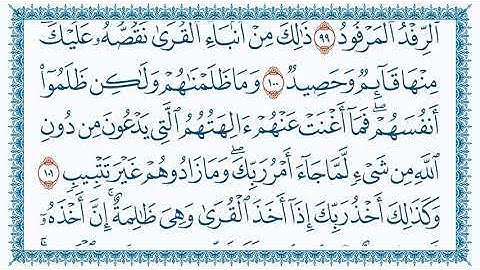 ٱلرِّفْدُ ٱلْمَرْفُودُ ٩٩ ذَٰلِكَ مِنْ أَنۢبَآءِ ٱلْقُرَىٰ نَقُصُّهُۥ عَلَيْكَ
مِنْهَا قَآئِمٌ وَحَصِيدٌ ١٠٠ وَمَا ظَلَمْنَٰهُمْ وَلَٰكِن ظَلَمُوٓا۟
أَنفُسَهُمْ ۖ فَمَآ أَغْنَتْ عَنْهُمْ ءَالِهَتُهُمُ ٱلَّتِى يَدْعُونَ مِن دُونِ
ٱللَّهِ مِن شَىْءٍ لَّمَّا جَآءَ أَمْرُ رَبِّكَ ۖ وَمَا زَادُوهُمْ غَيْرَ تَتْبِيبٍ ١٠١
وَكَذَٰلِكَ أَخْذُ رَبِّكَ إِذَآ أَخَذَ ٱلْقُرَىٰ وَهِىَ ظَٰلِمَةٌ ۚ إِنَّ أَخْذَهُۥٓ